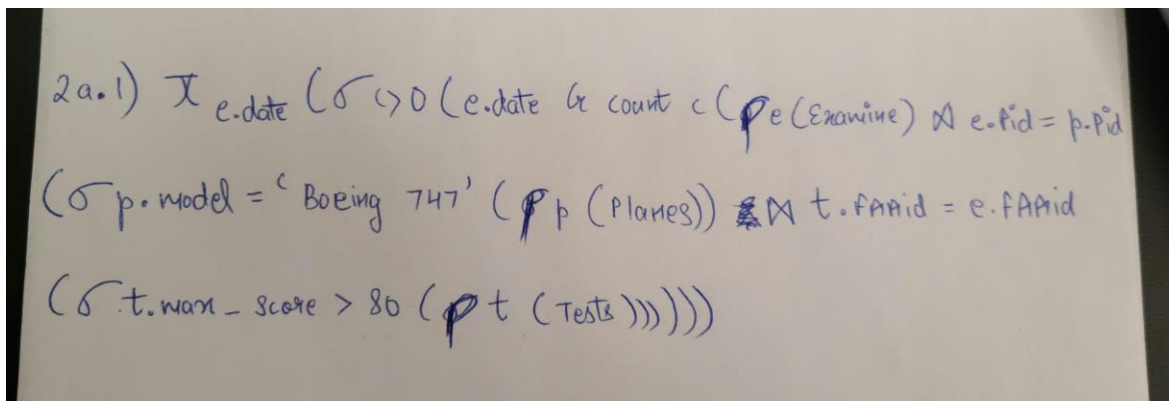 2a.1) π e.date (σ c>0 (e.date G count c (ρ e (Examine) ⋈ e.Pid = p.Pid
(σ p.model = 'Boeing 747' (ρ p (Planes)) ⋈ t.FAAid = e.FAAid
(σ t.max_score > 80 (ρ t (Tests))))))